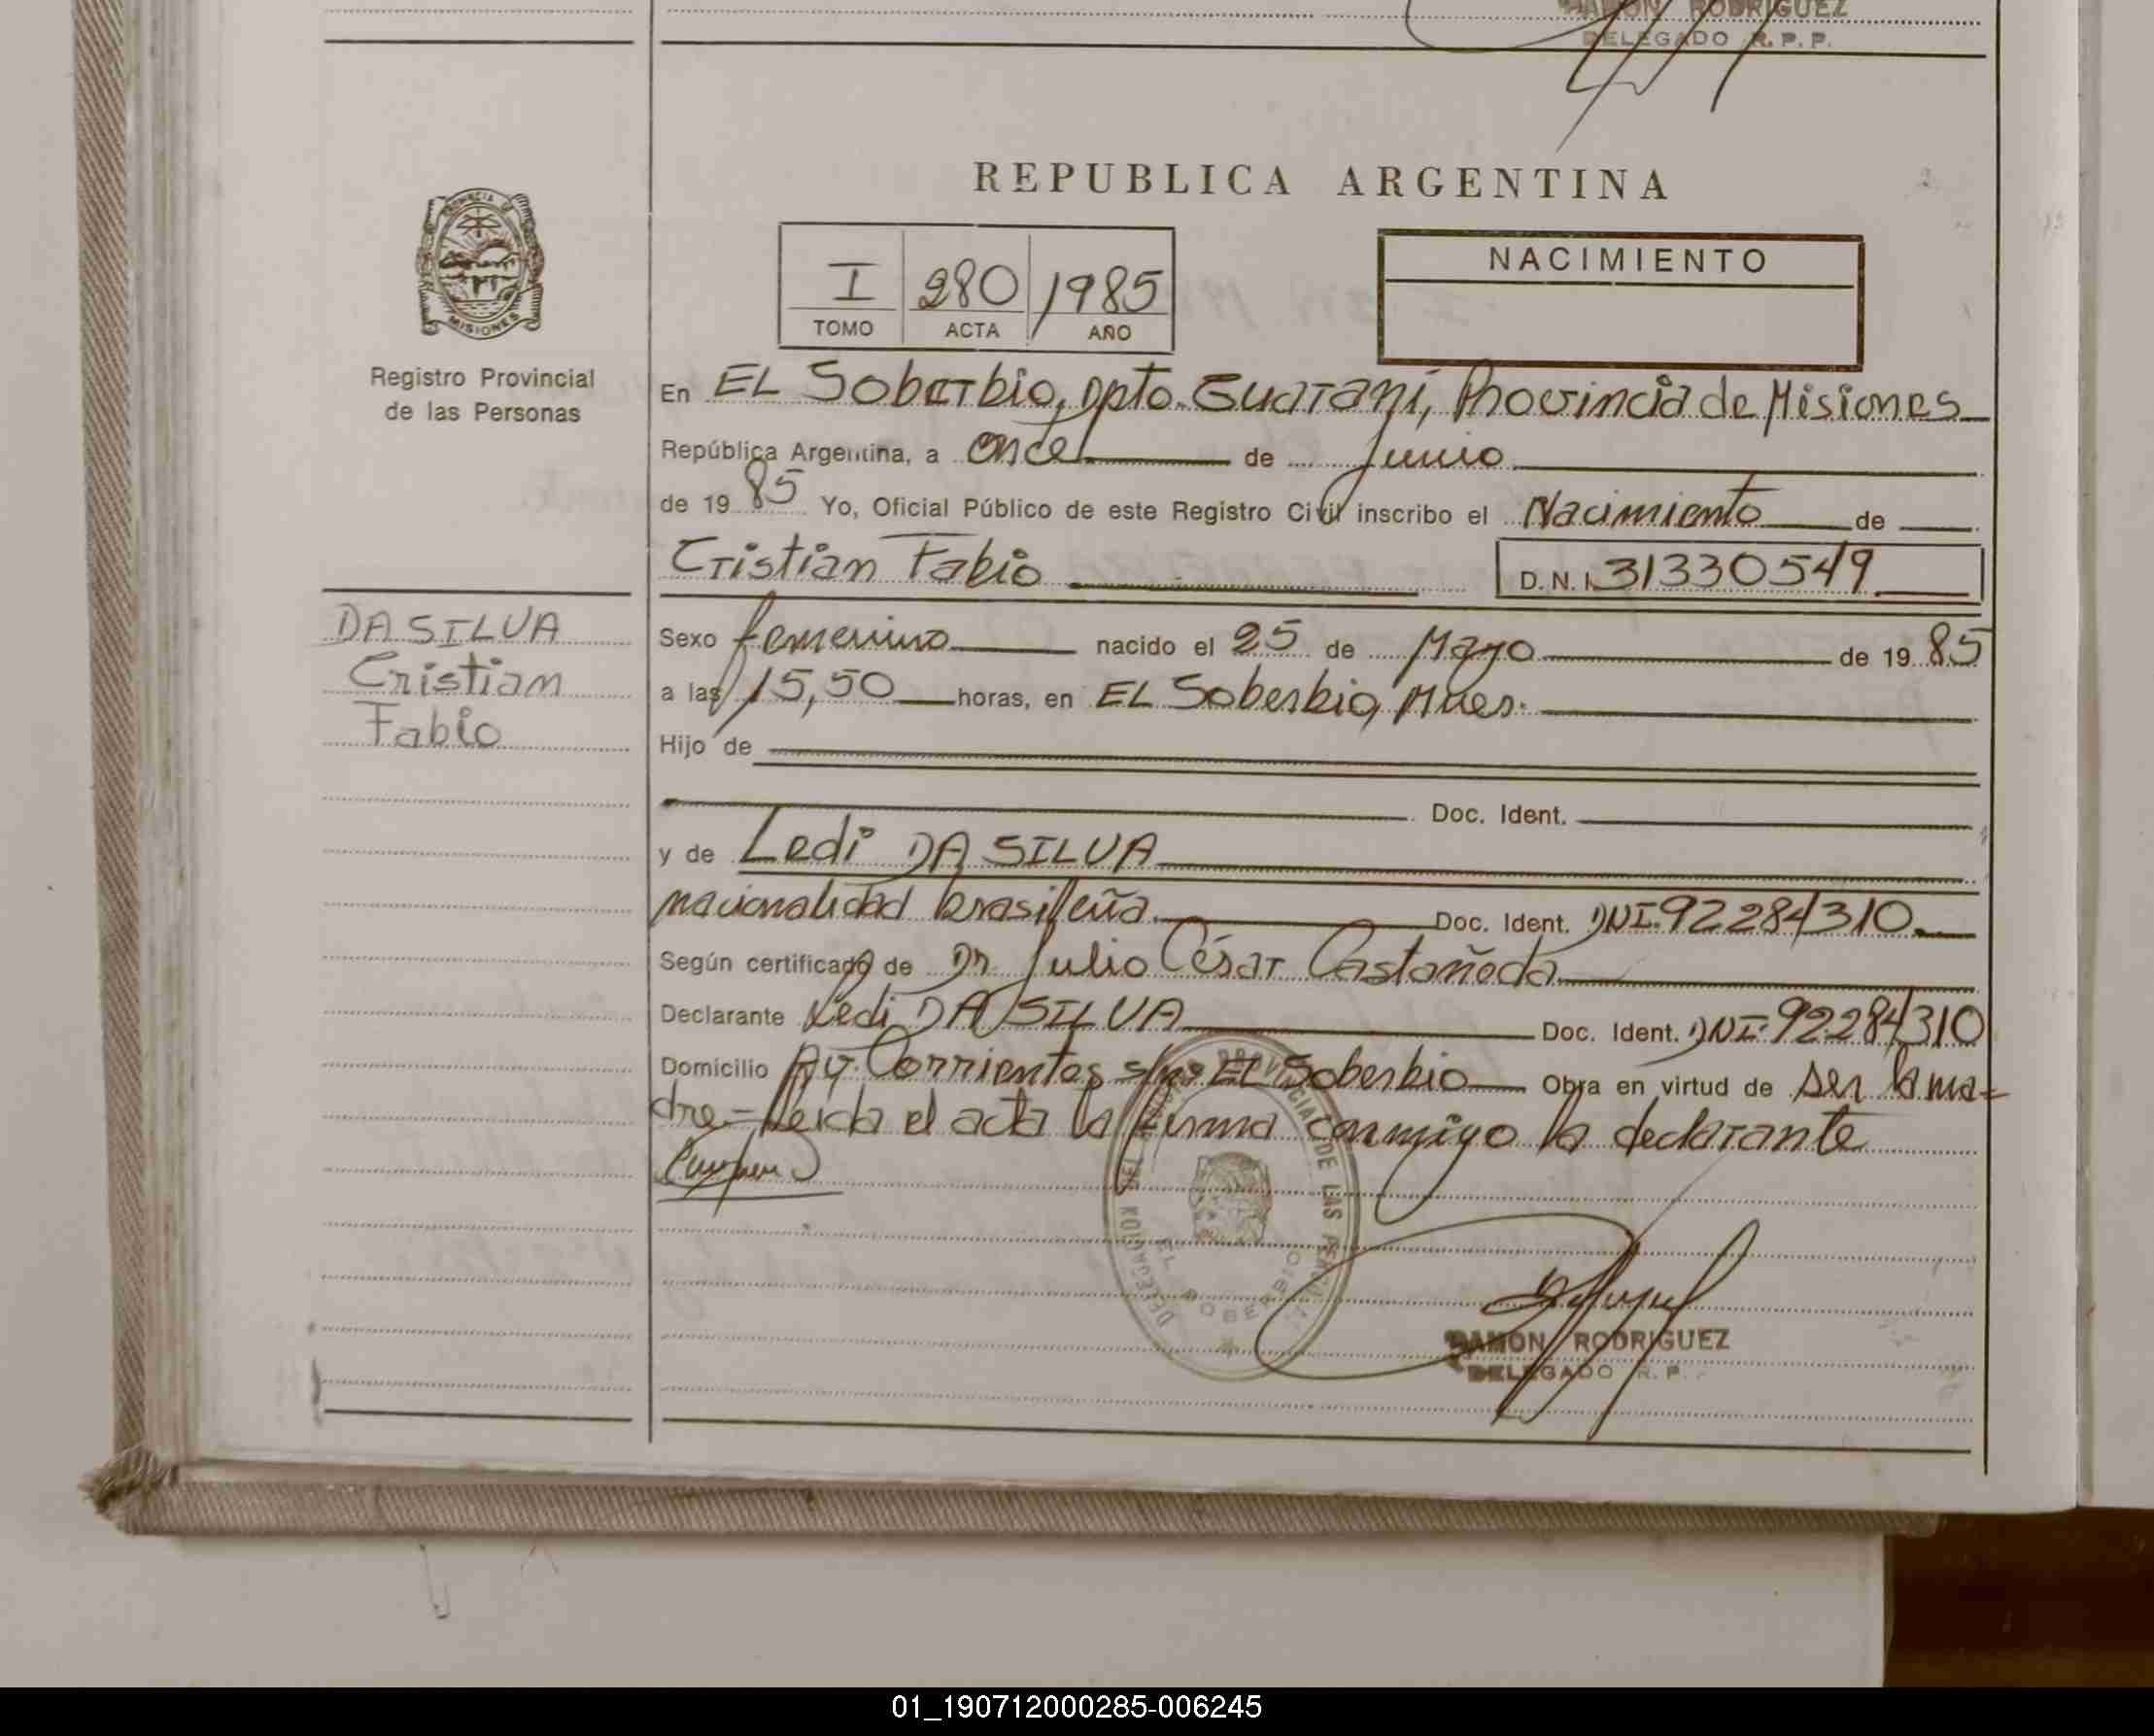 RAMON RODRIGUEZ
DELEGADO R.P.P.
PROVINCIA DE
MISIONES
Registro Provincial
de las Personas
REPUBLICA ARGENTINA
I 280 1985
TOMO ACTA AÑO
NACIMIENTO
En EL Soberbio, Dpto. Guarani, Provincia de Misiones
República Argentina, a once de Junio
de 19 85 Yo, Oficial Público de este Registro Civil inscribo el Nacimiento de
Cristian Fabio D.N.I. 31330549
DA SILVA
Cristian
Fabio
Sexo femenino nacido el 25 de Mayo de 19 85
a las 15,50 horas, en EL Soberbio, Mnes.
Hijo de
Doc. Ident.
y de Ledi DA SILVA
nacionalidad brasileña Doc. Ident. DNI. 92284310.
Según certificado de Dr. Julio César Castañeda
Declarante Ledi DA SILVA Doc. Ident. DNI. 92284310
Domicilio Av. Corrientes s/nº EL Soberbio Obra en virtud de ser la ma=
dre= Leida el acta la firma conmigo la declarante
DELEGACION DEL REGISTRO PROVINCIAL DE LAS PERSONAS
EL SOBERBIO
RAMON RODRIGUEZ
DELEGADO R.P.
01_190712000285-006245